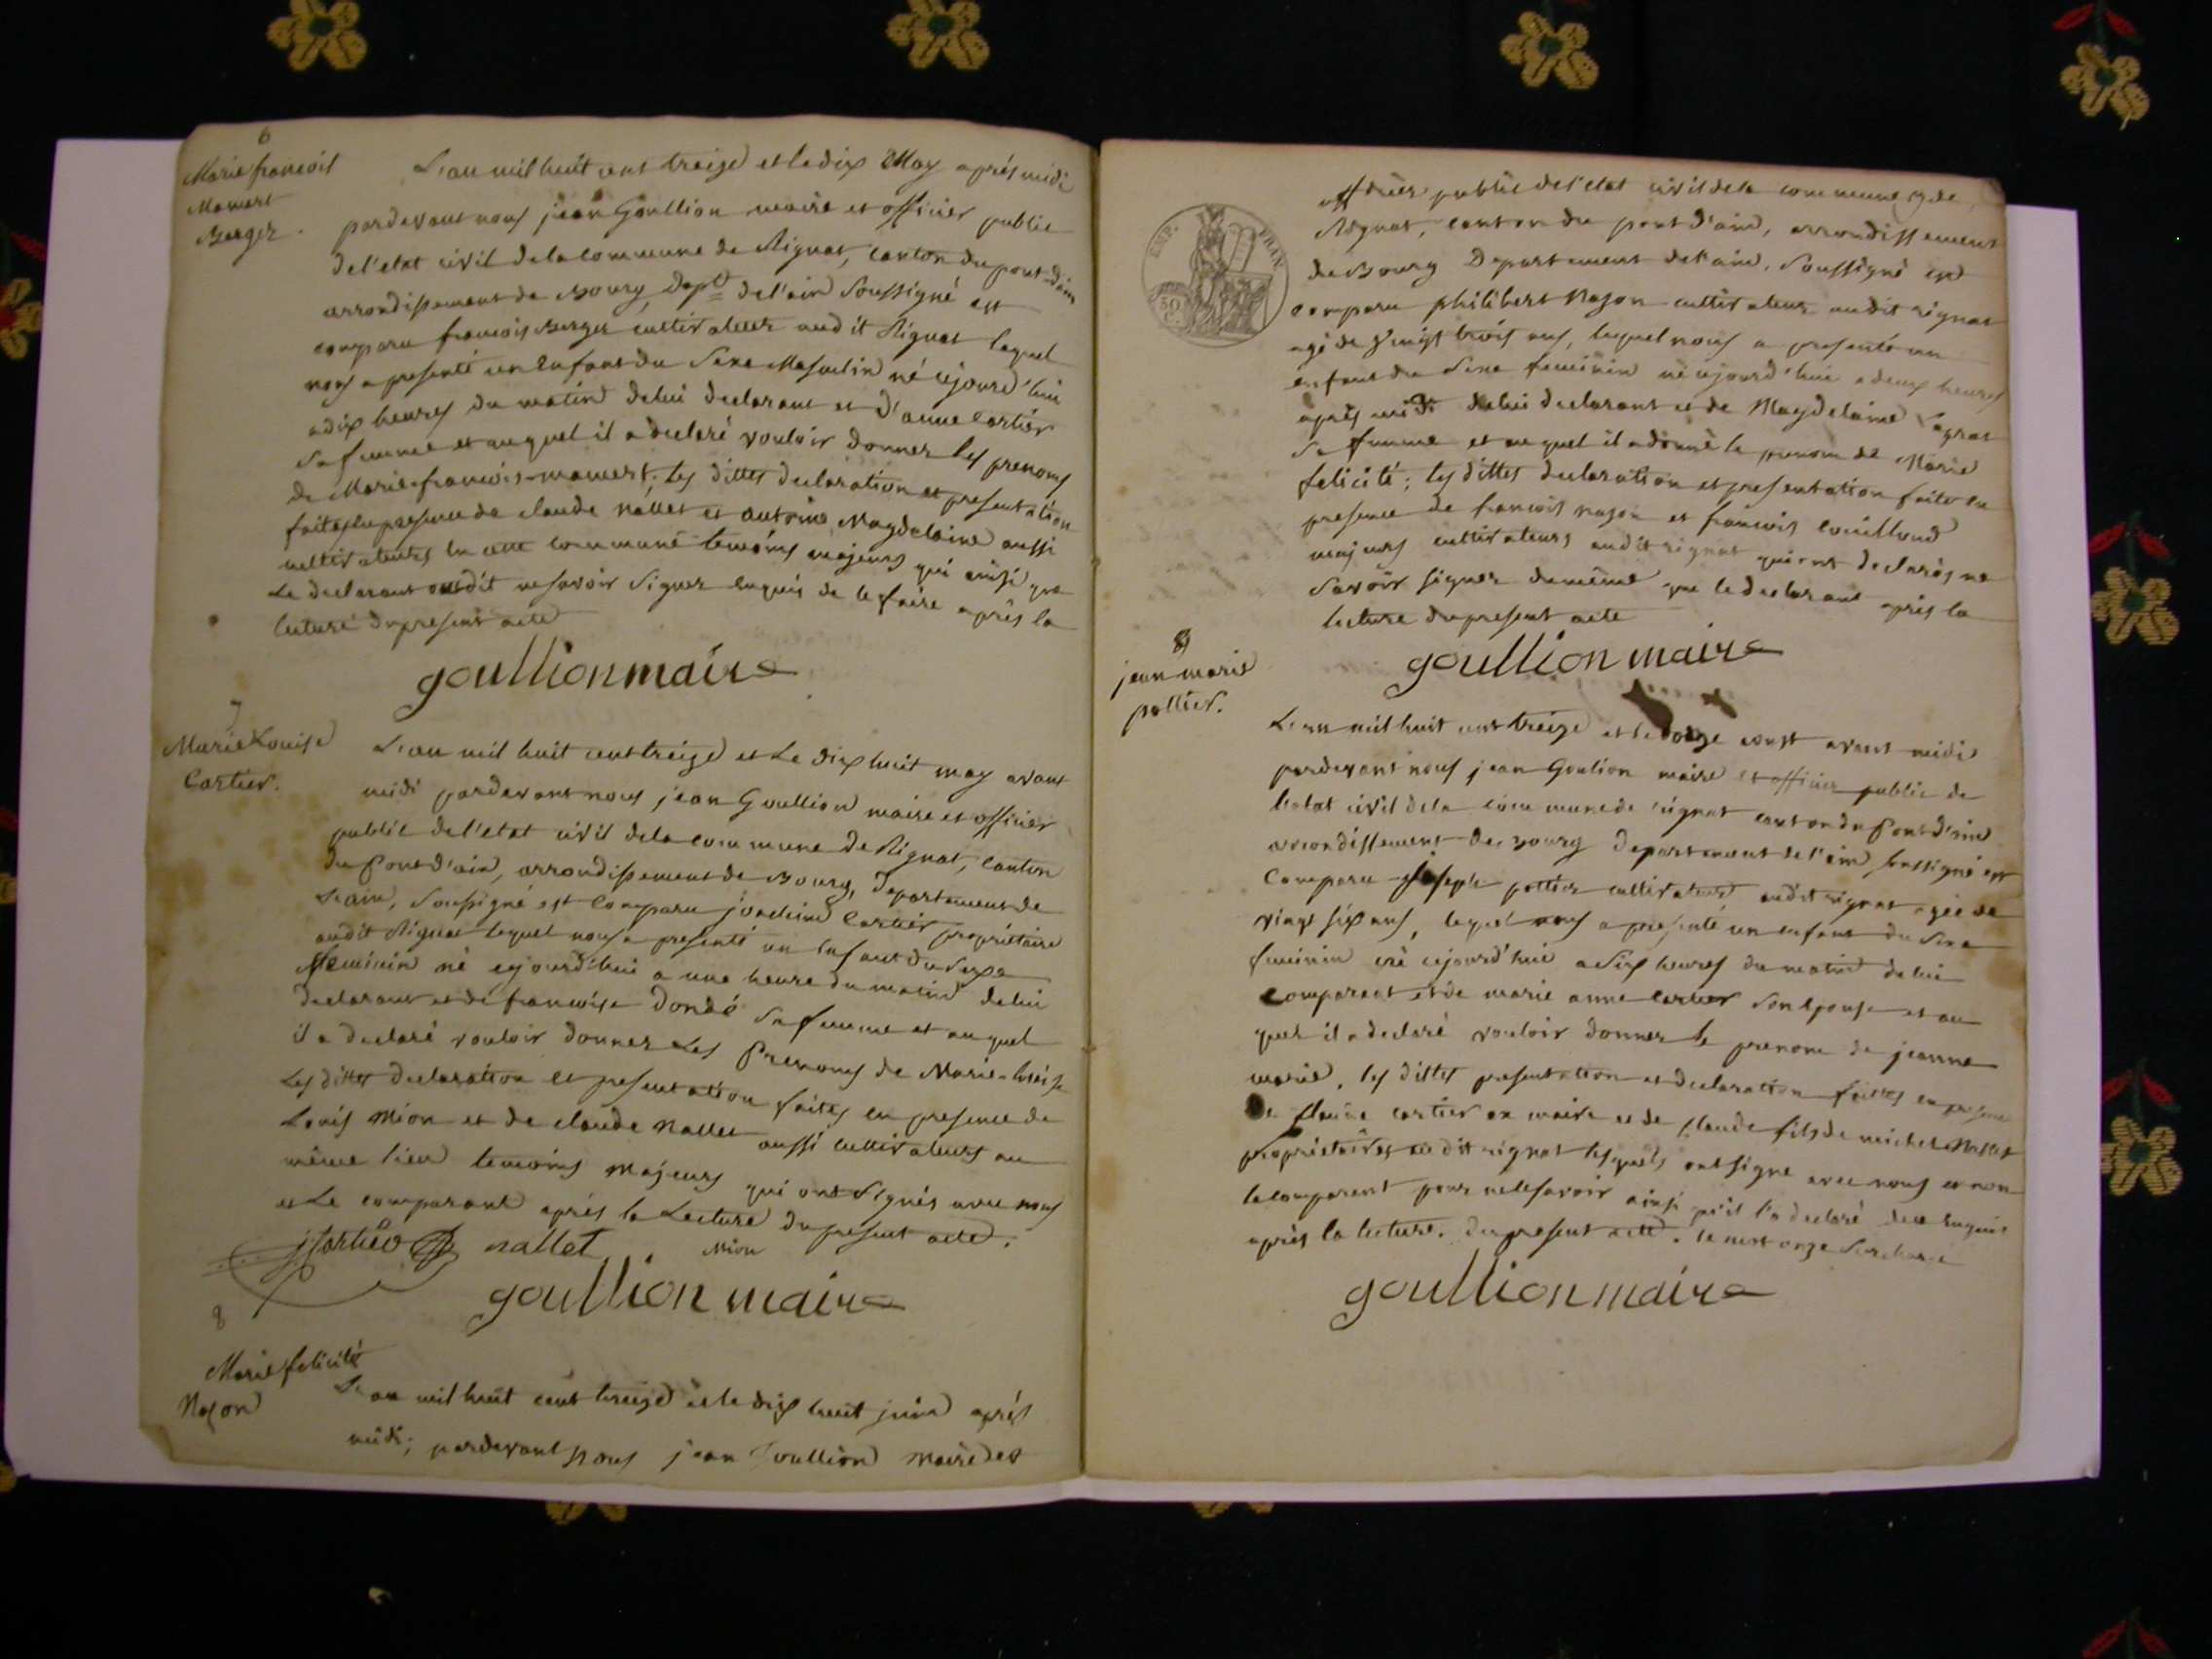 6
Marie françois
Mamert
Berger.
L'an mil huit cent treize et le dix May après midi
pardevant nous jean Goullion maire et officier public
de l'etat civil de la commune de Rignat, canton du pont d'ain
arrondissement de Bourg, dept de l'ain soussigné est
comparu francois Berger cultivateur audit Rignat lequel
nous a presenté un enfant du sexe Masculin né cejourd'hui
a dix heures du matin de lui declarant et d'anne Cartier
sa femme et auquel il a declaré vouloir donner les prenoms
de Marie-francois-mamert; les dittes declaration et presentation
faites en presence de claude nallet et antoine Magdelaine aussi
cultivateurs en cette commune temoins majeurs qui ainsi que
le declarant ont dit ne savoir signer enquis de le faire après la
lecture du present acte
goullion maire
7
Marie Louise
Cartier.
L'an mil huit cent treize et Le dix huit may avant
midi pardevant nous jean Goullion maire et officier
public de l'etat civil de la commune de Rignat, canton
du Pont d'ain, arrondissement de Bourg, Departement de
L'ain, soussigné est Comparu joachim Cartier propriétaire
audit Rignat lequel nous a presenté un enfant du sexe
feminin né cejourd'hui a une heure du matin de lui
declarant et de francoise Dondé sa femme et auquel
il a declaré vouloir donner Les Prenoms de Marie-louise
Les dittes declaration et presentation faites en presence de
Louis Mion et de claude Nallet aussi cultivateurs au
même lieu temoins Majeurs qui ont signés avec nous
et Le comparant après la Lecture du present acte.
jCartier nallet Mion
goullion maire
8
Marie felicité
Nason
L'an mil huit cent treize et le dix huit juin après
midi; pardevant Nous jean Goullion Maire et
EMP. FRAN
50 C
officier public de l'etat civil de la commune de
Rignat, canton du pont d'ain, arrondissement
de Bourg Departement de l'ain, soussigné est
comparu philibert Nason cultivateur audit rignat
agé de vingt trois ans, lequel nous a presenté un
enfant du sexe feminin né cejourd'hui a deux heures
après midi de lui declarant et de Magdelaine
sa femme et auquel il a donné le prenom de Marie
felicité; les dittes declaration et presentation faite en
presence de francois nason et francois
majeurs cultivateurs audit rignat qui ont declarés ne
savoir signer de même que le declarant après la
lecture du present acte
goullion maire
jean marie
pottier.
L'an mil huit cent treize et le onze aoust avant midi
pardevant nous jean Goulion maire et officier public de
l'etat civil de la commune de rignat canton du Pont d'ain
arrondissement de Bourg Departement de l'ain soussigné est
Comparu joseph pottier cultivateur audit rignat agée de
vingt six ans, lequel nous a presenté un enfant du sexe
feminin né cejourd'hui a six heures du matin de lui
comparant et de marie anne cartier son epouse et au
quel il a declaré vouloir donner le prenom de jeanne
marie, les dittes presentation et declaration faittes en presence
de claude cartier ex maire et de claude fils de michel Nallet
propriétaires audit rignat lesquels ont signe avec nous et non
le comparent pour ne le savoir ainsi qu'il l'a declaré de ce enquis
après la lecture. du present acte. le mot onze surchargé
goullion maire